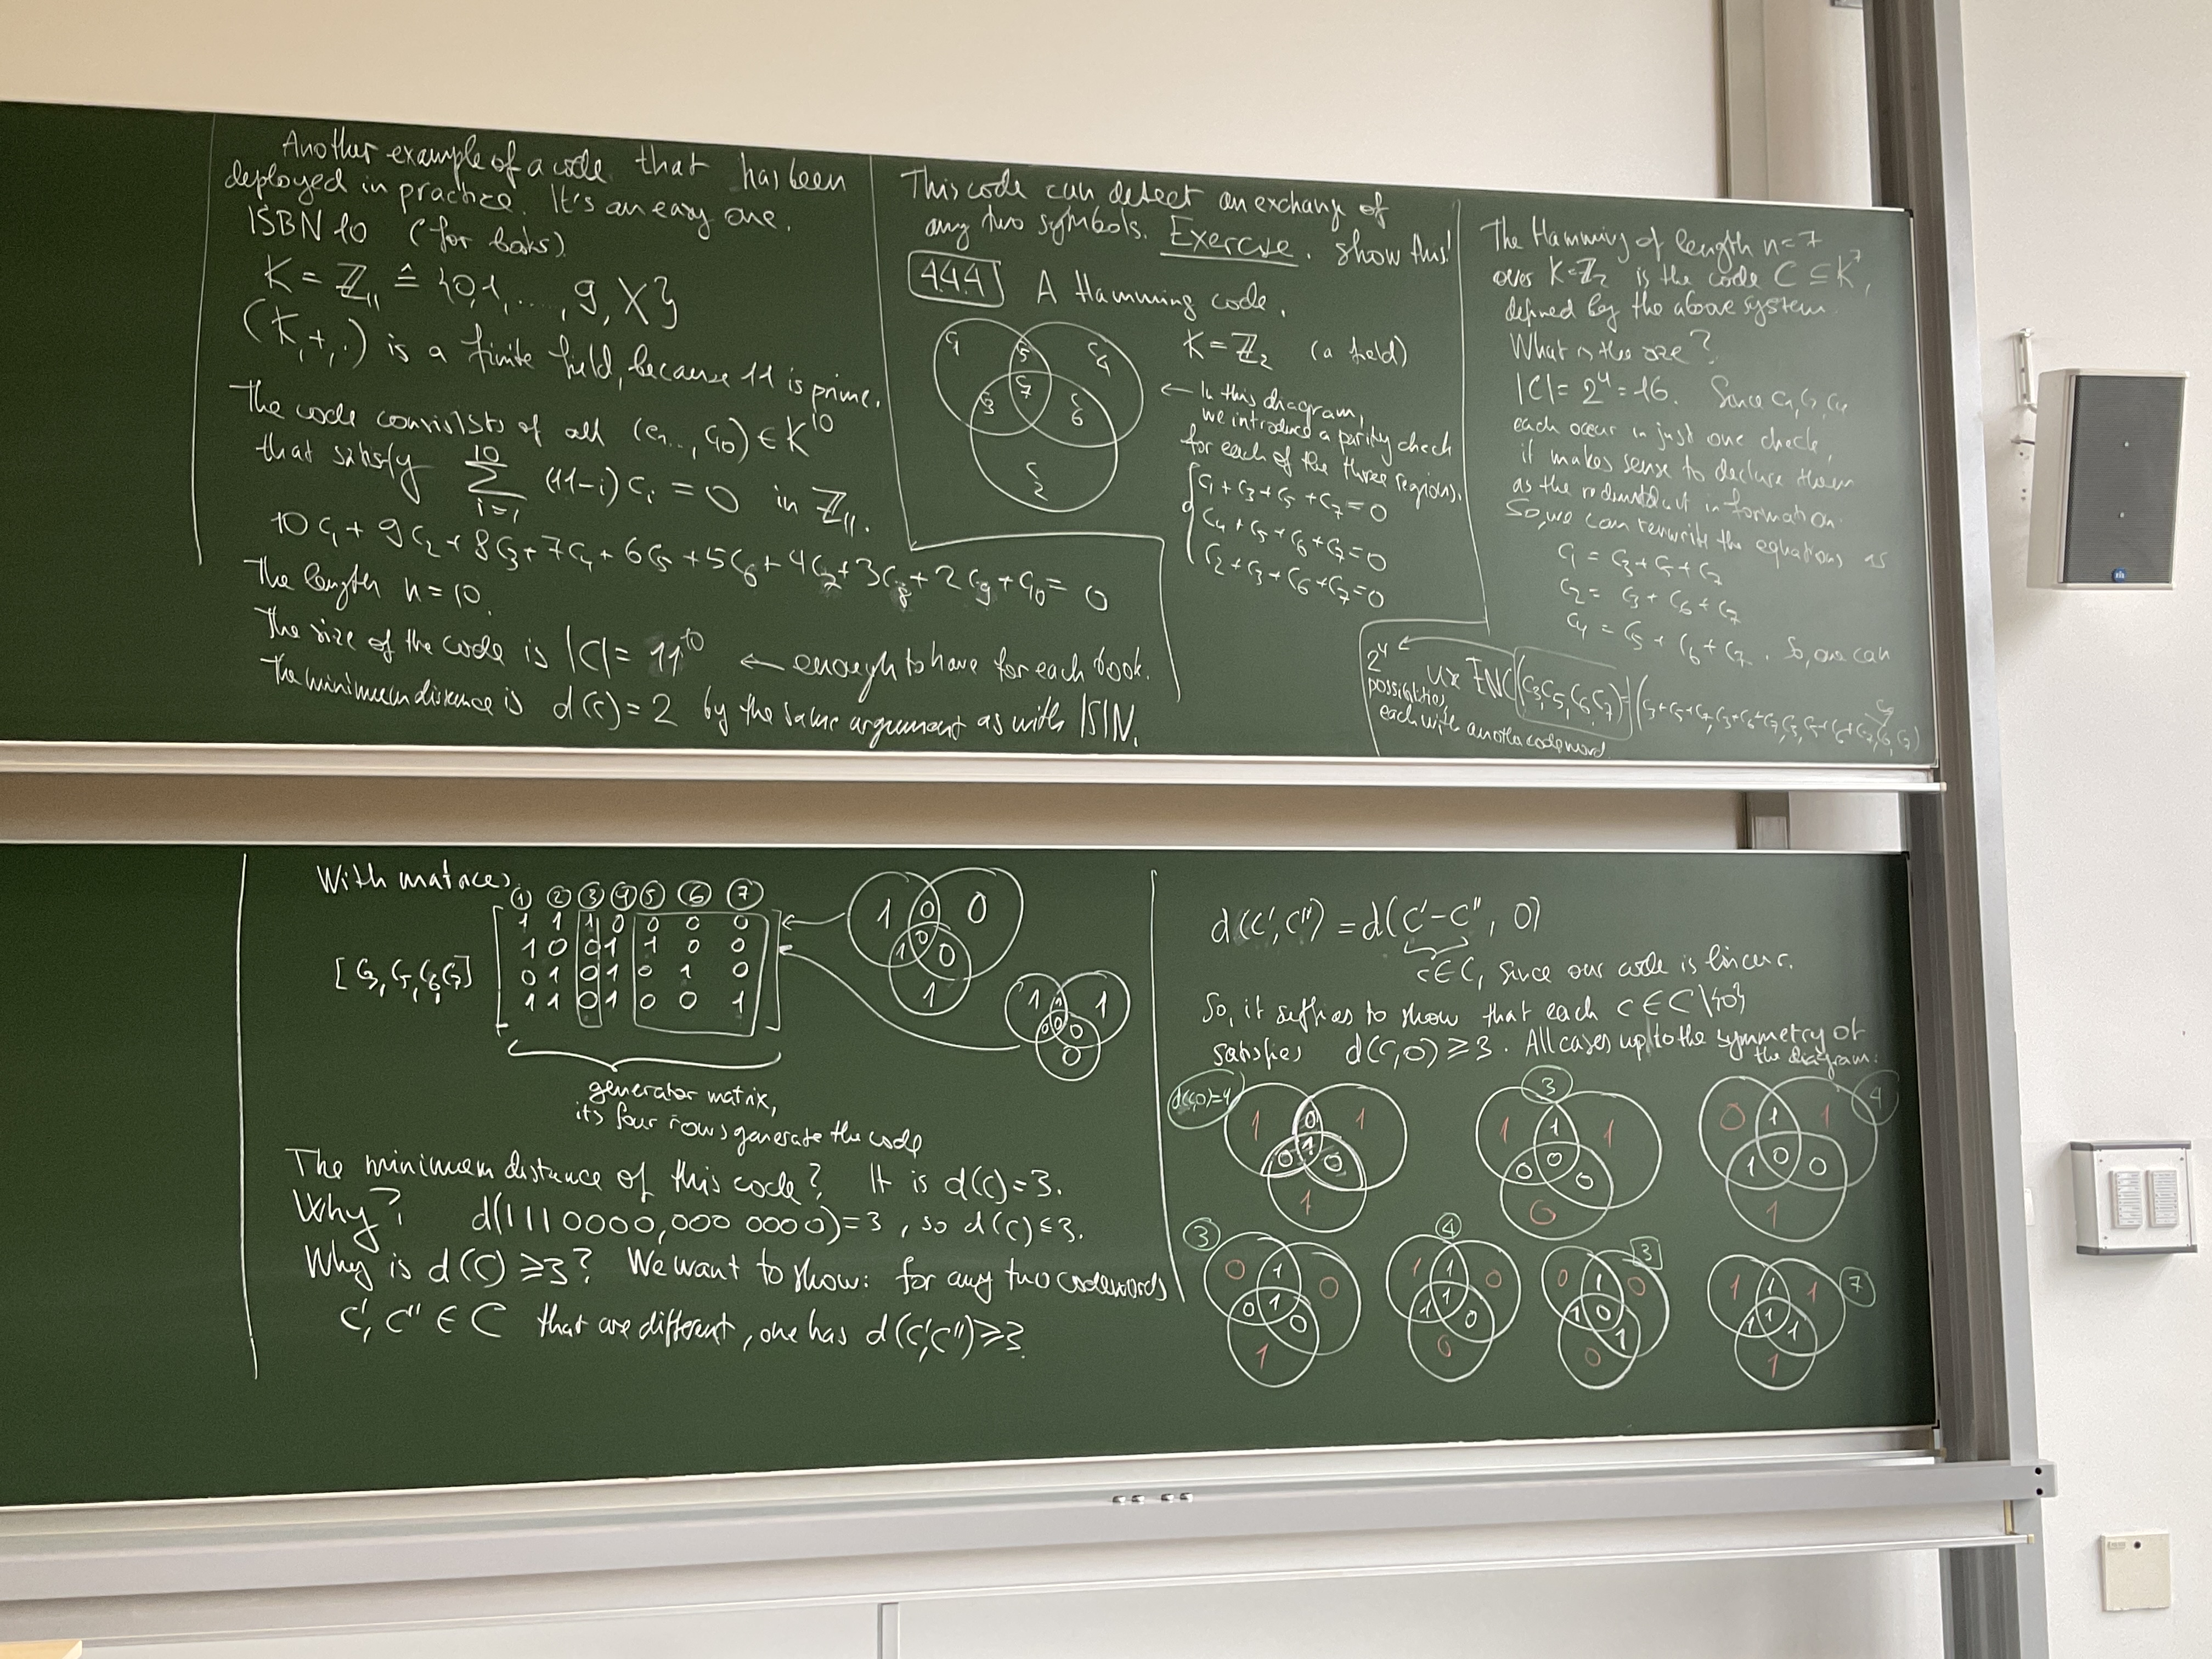 Another example of a code that has been
deployed in practice. It's an easy one.
ISBN 10 (for books)
K = ℤ₁₁ ≙ {0,1,....,9,X}
(K,+,·) is a finite field, because 11 is prime.
The code consists of all (c₁..., c₁₀) ∈ K¹⁰
that satisfy ∑_{i=1}^{10} (11-i) cᵢ = 0 in ℤ₁₁.
10c₁ + 9c₂ + 8c₃ + 7c₄ + 6c₅ + 5c₆ + 4c₇ + 3c₈ + 2c₉ + c₁₀ = 0
The length n = 10.
The size of the code is |C| = 11¹⁰ ← enough to have for each book.
The minimum distance is d(C) = 2 by the same argument as with ISIN.
This code can detect an exchange of
any two symbols. Exercise. Show this!
4.4.4 A Hamming code.
c₁ c₅ c₄
c₃ c₇ c₆
c₂
K = ℤ₂ (a field)
← In this diagram,
we introduce a parity check
for each of the three regions.
c₁ + c₃ + c₅ + c₇ = 0
c₄ + c₅ + c₆ + c₇ = 0
c₂ + c₃ + c₆ + c₇ = 0
The Hamming of length n=7
over K=ℤ₂ is the code C ⊆ K⁷,
defined by the above system.
What is the size?
|C| = 2⁴ = 16. Since c₁, c₂, c₄
each occur in just one check,
it makes sense to declare them
as the redundant information.
So, we can rewrite the equations as
c₁ = c₃ + c₅ + c₇
c₂ = c₃ + c₆ + c₇
c₄ = c₅ + c₆ + c₇. So, one can
ux ENC(c₃,c₅,c₆,c₇) = (c₃+c₅+c₇,c₃+c₆+c₇,c₃,c₅+c₆+c₇,c₅,c₆,c₇)
2⁴
possibilities,
each with another codeword
With matrices
① ② ③ ④ ⑤ ⑥ ⑦
1 1 1 0 0 0 0
1 0 0 1 1 0 0
[c₃,c₅,c₆,c₇]
0 1 0 1 0 1 0
1 1 0 1 0 0 1
generator matrix,
its four rows generate the code
1 0 0
1 0 0
1
1 1 1
0 0 0
0
The minimum distance of this code? It is d(C) = 3.
Why? d(1110000,000 0000) = 3, so d(C) ≤ 3.
Why is d(C) ≥ 3? We want to show: for any two codewords
c', c'' ∈ C that are different, one has d(c',c'') ≥ 3.
d(c',c'') = d(c'-c'', 0)
c∈C, since our code is linear.
So, it suffies to show that each c ∈ C\{0}
satisfies d(c,0) ≥ 3. All cases up to the symmetry of
the diagram:
d(c,0)=4
1 0 1
0 1 0
1
3
1 1 1
0 0 0
0
4
0 1 1
1 0 0
1
3
0 1 0
0 1 0
1
4
1 1 0
1 1 0
0
3
0 1 0
1 0 1
0
7
1 1 1
1 1 1
1